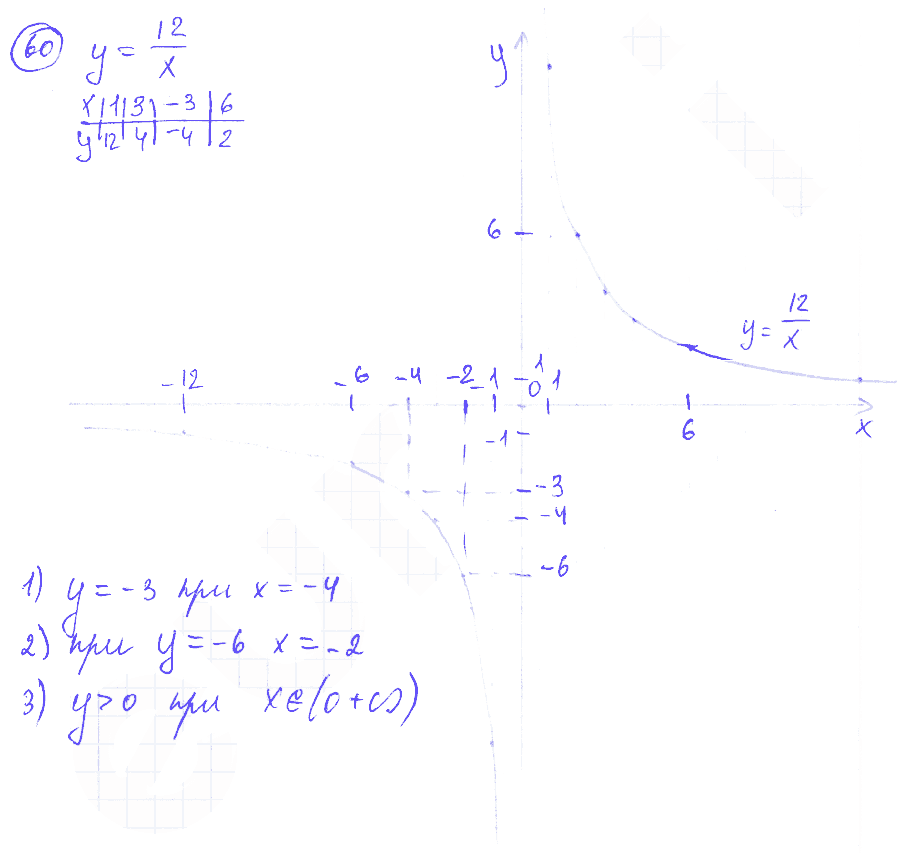 60 y = 12/x
x | 1 | 3 | -3 | 6
y | 12 | 4 | -4 | 2
y
6
y = 12/x
-12 -6 -4 -2 -1 1 0 1
6 x
-1
-3
-4
-6
1) y = -3 при x = -4
2) при y = -6 x = -2
3) y > 0 при x ∈ (0 +∞)